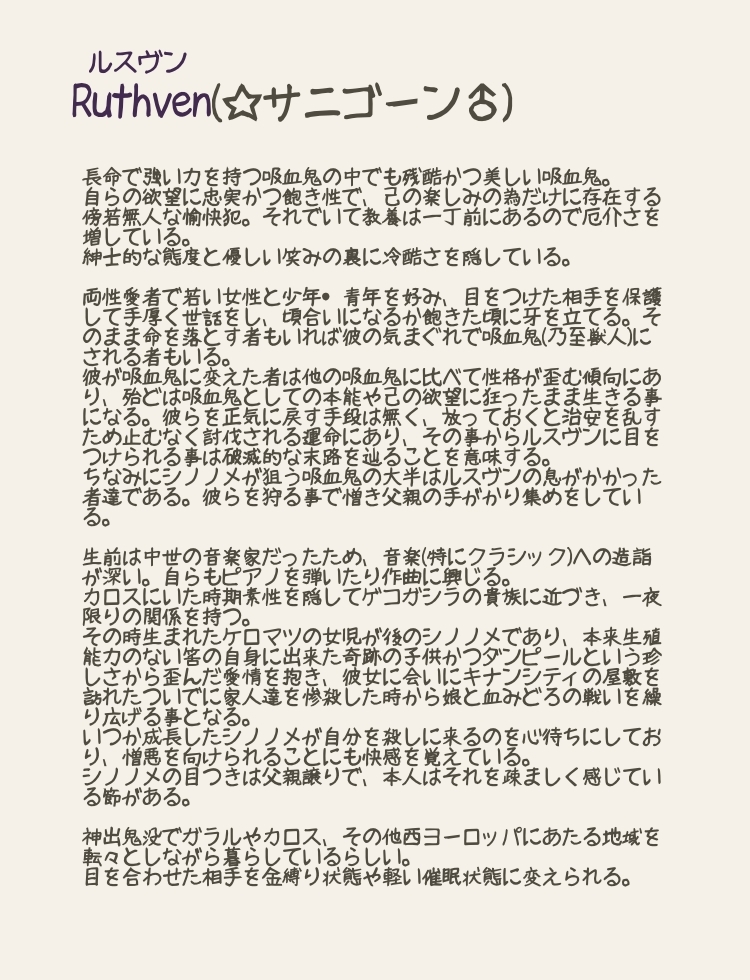 ルスヴン
Ruthven(☆サニゴーン♂)
長命で強い力を持つ吸血鬼の中でも残酷かつ美しい吸血鬼。
自らの欲望に忠実かつ飽き性で、己の楽しみの為だけに存在する
傍若無人な愉快犯。それでいて教養は一丁前にあるので厄介さを
増している。
紳士的な態度と優しい笑みの裏に冷酷さを隠している。
両性愛者で若い女性と少年•青年を好み、目をつけた相手を保護
して手厚く世話をし、頃合いになるか飽きた頃に牙を立てる。そ
のまま命を落とす者もいれば彼の気まぐれで吸血鬼(乃至獣人)に
される者もいる。
彼が吸血鬼に変えた者は他の吸血鬼に比べて性格が歪む傾向にあ
り、殆どは吸血鬼としての本能や己の欲望に狂ったまま生きる事
になる。彼らを正気に戻す手段は無く、放っておくと治安を乱す
ため止むなく討伐される運命にあり、その事からルスヴンに目を
つけられる事は破滅的な末路を辿ることを意味する。
ちなみにシノノメが狙う吸血鬼の大半はルスヴンの息がかかった
者達である。彼らを狩る事で憎き父親の手がかり集めをしてい
る。
生前は中世の音楽家だったため、音楽(特にクラシック)への造詣
が深い。自らもピアノを弾いたり作曲に興じる。
カロスにいた時期素性を隠してゲコガシラの貴族に近づき、一夜
限りの関係を持つ。
その時生まれたケロマツの女児が後のシノノメであり、本来生殖
能力のない筈の自身に出来た奇跡の子供かつダンピールという珍
しさから歪んだ愛情を抱き、彼女に会いにキナンシティの屋敷を
訪れたついでに家人達を惨殺した時から娘と血みどろの戦いを繰
り広げる事となる。
いつか成長したシノノメが自分を殺しに来るのを心待ちにしてお
り、憎悪を向けられることにも快感を覚えている。
シノノメの目つきは父親譲りで、本人はそれを疎ましく感じてい
る節がある。
神出鬼没でガラルやカロス、その他西ヨーロッパにあたる地域を
転々としながら暮らしているらしい。
目を合わせた相手を金縛り状態や軽い催眠状態に変えられる。